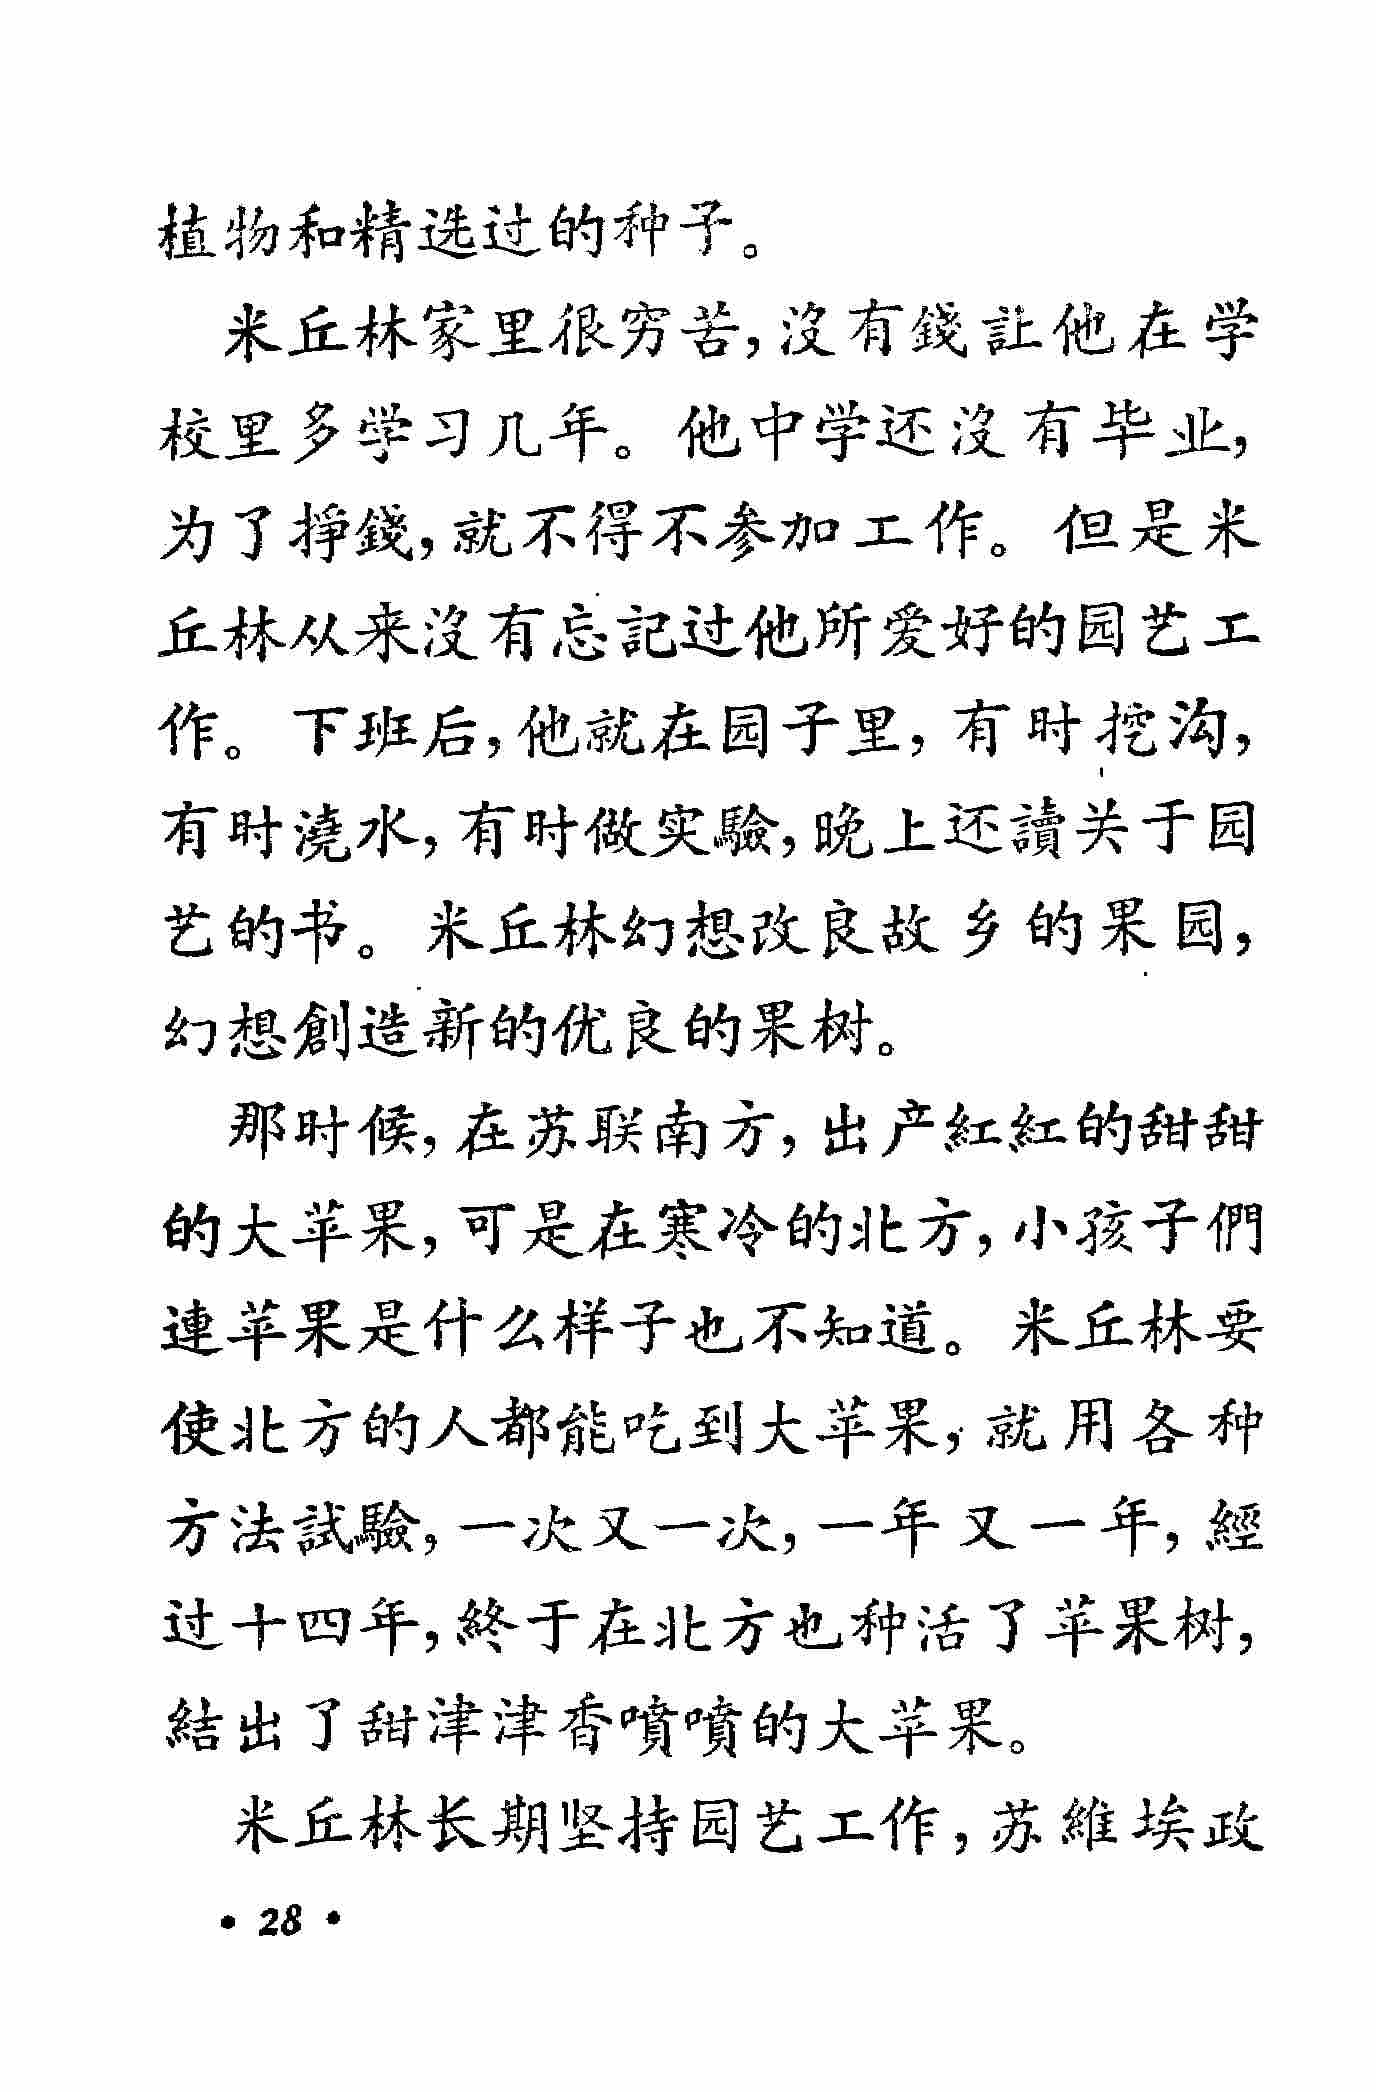 植物和精选过的种子。
米丘林家里很穷苦,沒有錢讓他在学
校里多学习几年。他中学还沒有毕业,
为了掙錢,就不得不参加工作。但是米
丘林从来沒有忘記过他所爱好的园艺工
作。下班后,他就在园子里,有时挖沟,
有时澆水,有时做实驗,晚上还讀关于园
艺的书。米丘林幻想改良故乡的果园,
幻想創造新的优良的果树。
那时候,在苏联南方,出产紅紅的甜甜
的大苹果,可是在寒冷的北方,小孩子們
連苹果是什么样子也不知道。米丘林要
使北方的人都能吃到大苹果,就用各种
方法試驗,一次又一次,一年又一年,經
过十四年,終于在北方也种活了苹果树,
結出了甜津津香噴噴的大苹果。
米丘林长期坚持园艺工作,苏維埃政
• 28 •